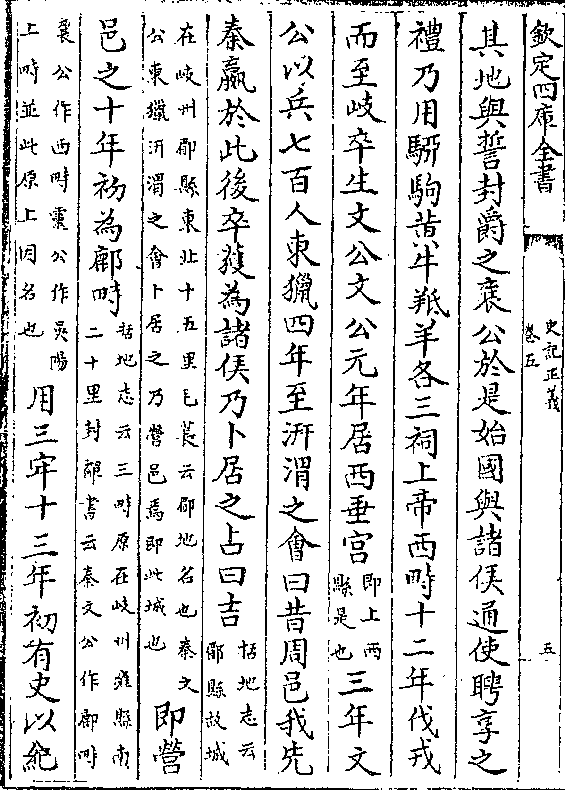 欽定四庫全書
史記正義
卷五
五
其地與誓封爵之襄公於是始國與諸侯通使聘享之
禮乃用駵駒黃牛羝羊各三祠上帝西畤十二年伐戎
而至岐卒生文公文公元年居西垂宮即上西縣是也三年文
公以兵七百人東獵四年至汧渭之會曰昔周邑我先
秦嬴於此後卒獲為諸侯乃卜居之占曰吉括地志云郿縣故城
在岐州郿縣東北十五里毛萇云郿地名也秦文公東獵汧渭之會卜居之乃營邑焉即此城也即營
邑之十年初為鄜畤括地志云三畤原在岐州雍縣南二十里封禪書云秦文公作鄜畤
襄公作西畤靈公作吳陽上畤並此原上因名也用三牢十三年初有史以紀